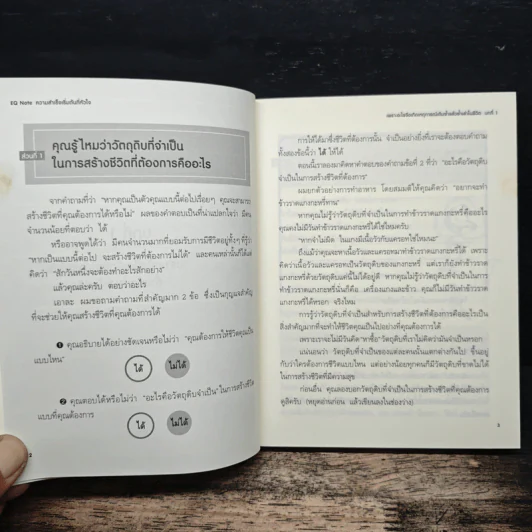 EQ Note ความสำเร็จเริ่มต้นที่หัวใจ
ส่วนที่ 1
คุณรู้ไหมว่าวัตถุดิบที่จำเป็น
ในการสร้างชีวิตที่ต้องการคืออะไร
จากคำถามที่ว่า “หากคุณเป็นตัวคุณแบบนี้ต่อไปเรื่อยๆ คุณจะสามารถ
สร้างชีวิตที่คุณต้องการได้หรือไม่” ผลของคำตอบเป็นที่น่าแปลกใจว่า มีคน
จำนวนน้อยที่ตอบว่า ได้
หรืออาจพูดได้ว่า มีคนจำนวนมากที่ยอมรับการมีชีวิตอยู่ทั้งๆ ที่รู้ว่า
“หากเป็นแบบนี้ต่อไป จะสร้างชีวิตที่ต้องการไม่ได้” และคนเหล่านั้นก็ได้แต่
คิดว่า “สักวันหนึ่งจะต้องทำอะไรสักอย่าง”
แล้วคุณล่ะครับ ตอบว่าอะไร
เอาละ ผมขอถามคำถามที่สำคัญมาก 2 ข้อ ซึ่งเป็นกุญแจสำคัญ
ที่จะช่วยให้คุณสร้างชีวิตที่คุณต้องการได้
❶ คุณอธิบายได้อย่างชัดเจนหรือไม่ว่า “คุณต้องการใช้ชีวิตคุณเป็น
แบบไหน”
ได้ ไม่ได้
❷ คุณตอบได้หรือไม่ว่า “อะไรคือวัตถุดิบจำเป็น” ในการสร้างชีวิต
แบบที่คุณต้องการ
ได้ ไม่ได้
2
บทที่ 1
การได้ได้มาซึ่งชีวิตที่ต้องการนั้น จำเป็นอย่างยิ่งที่เราจะต้องตอบคำถาม
ทั้งสองข้อนี้ว่า ได้ ให้ได้
ตอนนี้เราลองมาคิดหาคำตอบของคำถามข้อที่ 2 ที่ว่า “อะไรคือวัตถุดิบ
ในการสร้างชีวิตที่ต้องการ”
ผมยกตัวอย่างการทำอาหาร โดยสมมติให้คุณคิดว่า “อยากจะทำ
ข้าวราดแกงกะหรี่ทาน”
หากคุณไม่รู้ว่าวัตถุดิบที่จำเป็นในการทำข้าวราดแกงกะหรี่คืออะไร
คุณคงไม่มีวันทำข้าวราดแกงกะหรี่ได้ใช่ไหมครับ
“หากจำไม่ผิด ในแกงมีเนื้อวัวกับแครอทใช่ไหมนะ”
ถึงแม้ว่าคุณจะหาเนื้อวัวและแครอทมาทำข้าวราดแกงกะหรี่ได้ เพราะ
คิดว่าเนื้อวัวและแครอทเป็นวัตถุดิบของแกงกะหรี่ แต่เราก็ยังทำข้าวราด
แกงกะหรี่ด้วยวัตถุดิบแค่นี้ไม่ได้อยู่ดี หากคุณไม่รู้ว่าวัตถุดิบที่จำเป็นในการทำ
ข้าวราดแกงกะหรี่นั้นก็คือ เครื่องแกงและข้าว คุณก็ไม่มีวันทำข้าวราด
แกงกะหรี่ได้หรอก จริงไหม
การรู้ว่าวัตถุดิบที่จำเป็นสำหรับการสร้างชีวิตที่ต้องการคืออะไรเป็น
สิ่งสำคัญมากที่จะทำให้ชีวิตคุณเป็นไปอย่างที่คุณต้องการได้
เพราะเราจะไม่มีวันคิด “หาซื้อ” วัตถุดิบที่เราไม่คิดว่ามันจำเป็นหรอก
แน่นอนว่า วัตถุดิบที่จำเป็นของแต่ละคนนั้นแตกต่างกันไป ขึ้นอยู่
กับว่าใครต้องการชีวิตแบบไหน แต่อย่างน้อยทุกคนก็มีวัตถุดิบที่ขาดไม่ได้
ในการสร้างชีวิตที่มีความสุข
ก่อนอื่น คุณลองบอกวัตถุดิบที่จำเป็นในการสร้างชีวิตที่คุณต้องการ
ดูสิครับ (หยุดอ่านก่อน แล้วเขียนลงในช่องว่าง)
3